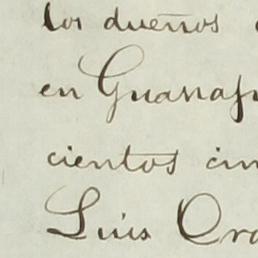 los dueños
en Guanaju
cientos cin
Luis Oro